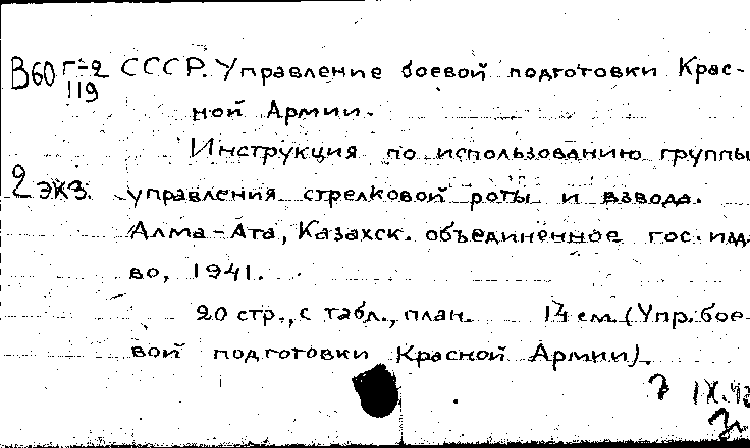 В60 г-2 СССР. Управление боевой подготовки Крас-
119
ной Армии.
Инструкция по использованию группы
2 экз. управления стрелковой роты и взвода.
Алма-Ата, Казахск. объединенное гос. изд-
во, 1941.
20 стр., с табл., план. 14 см. (Упр. бое-
вой подготовки Красной Армии).
IX.42